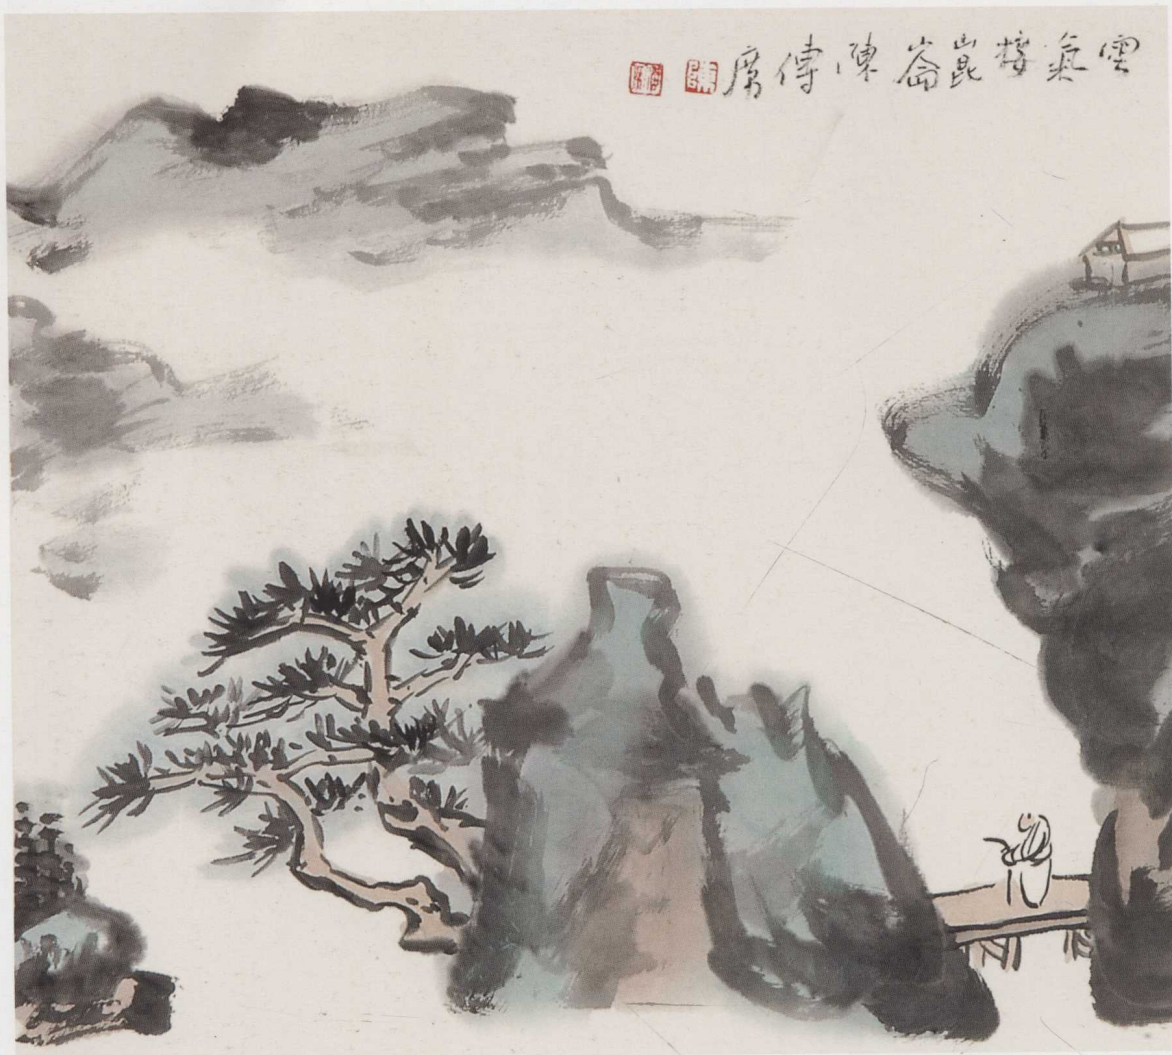 雲氣接崑崙陳傳席
陳